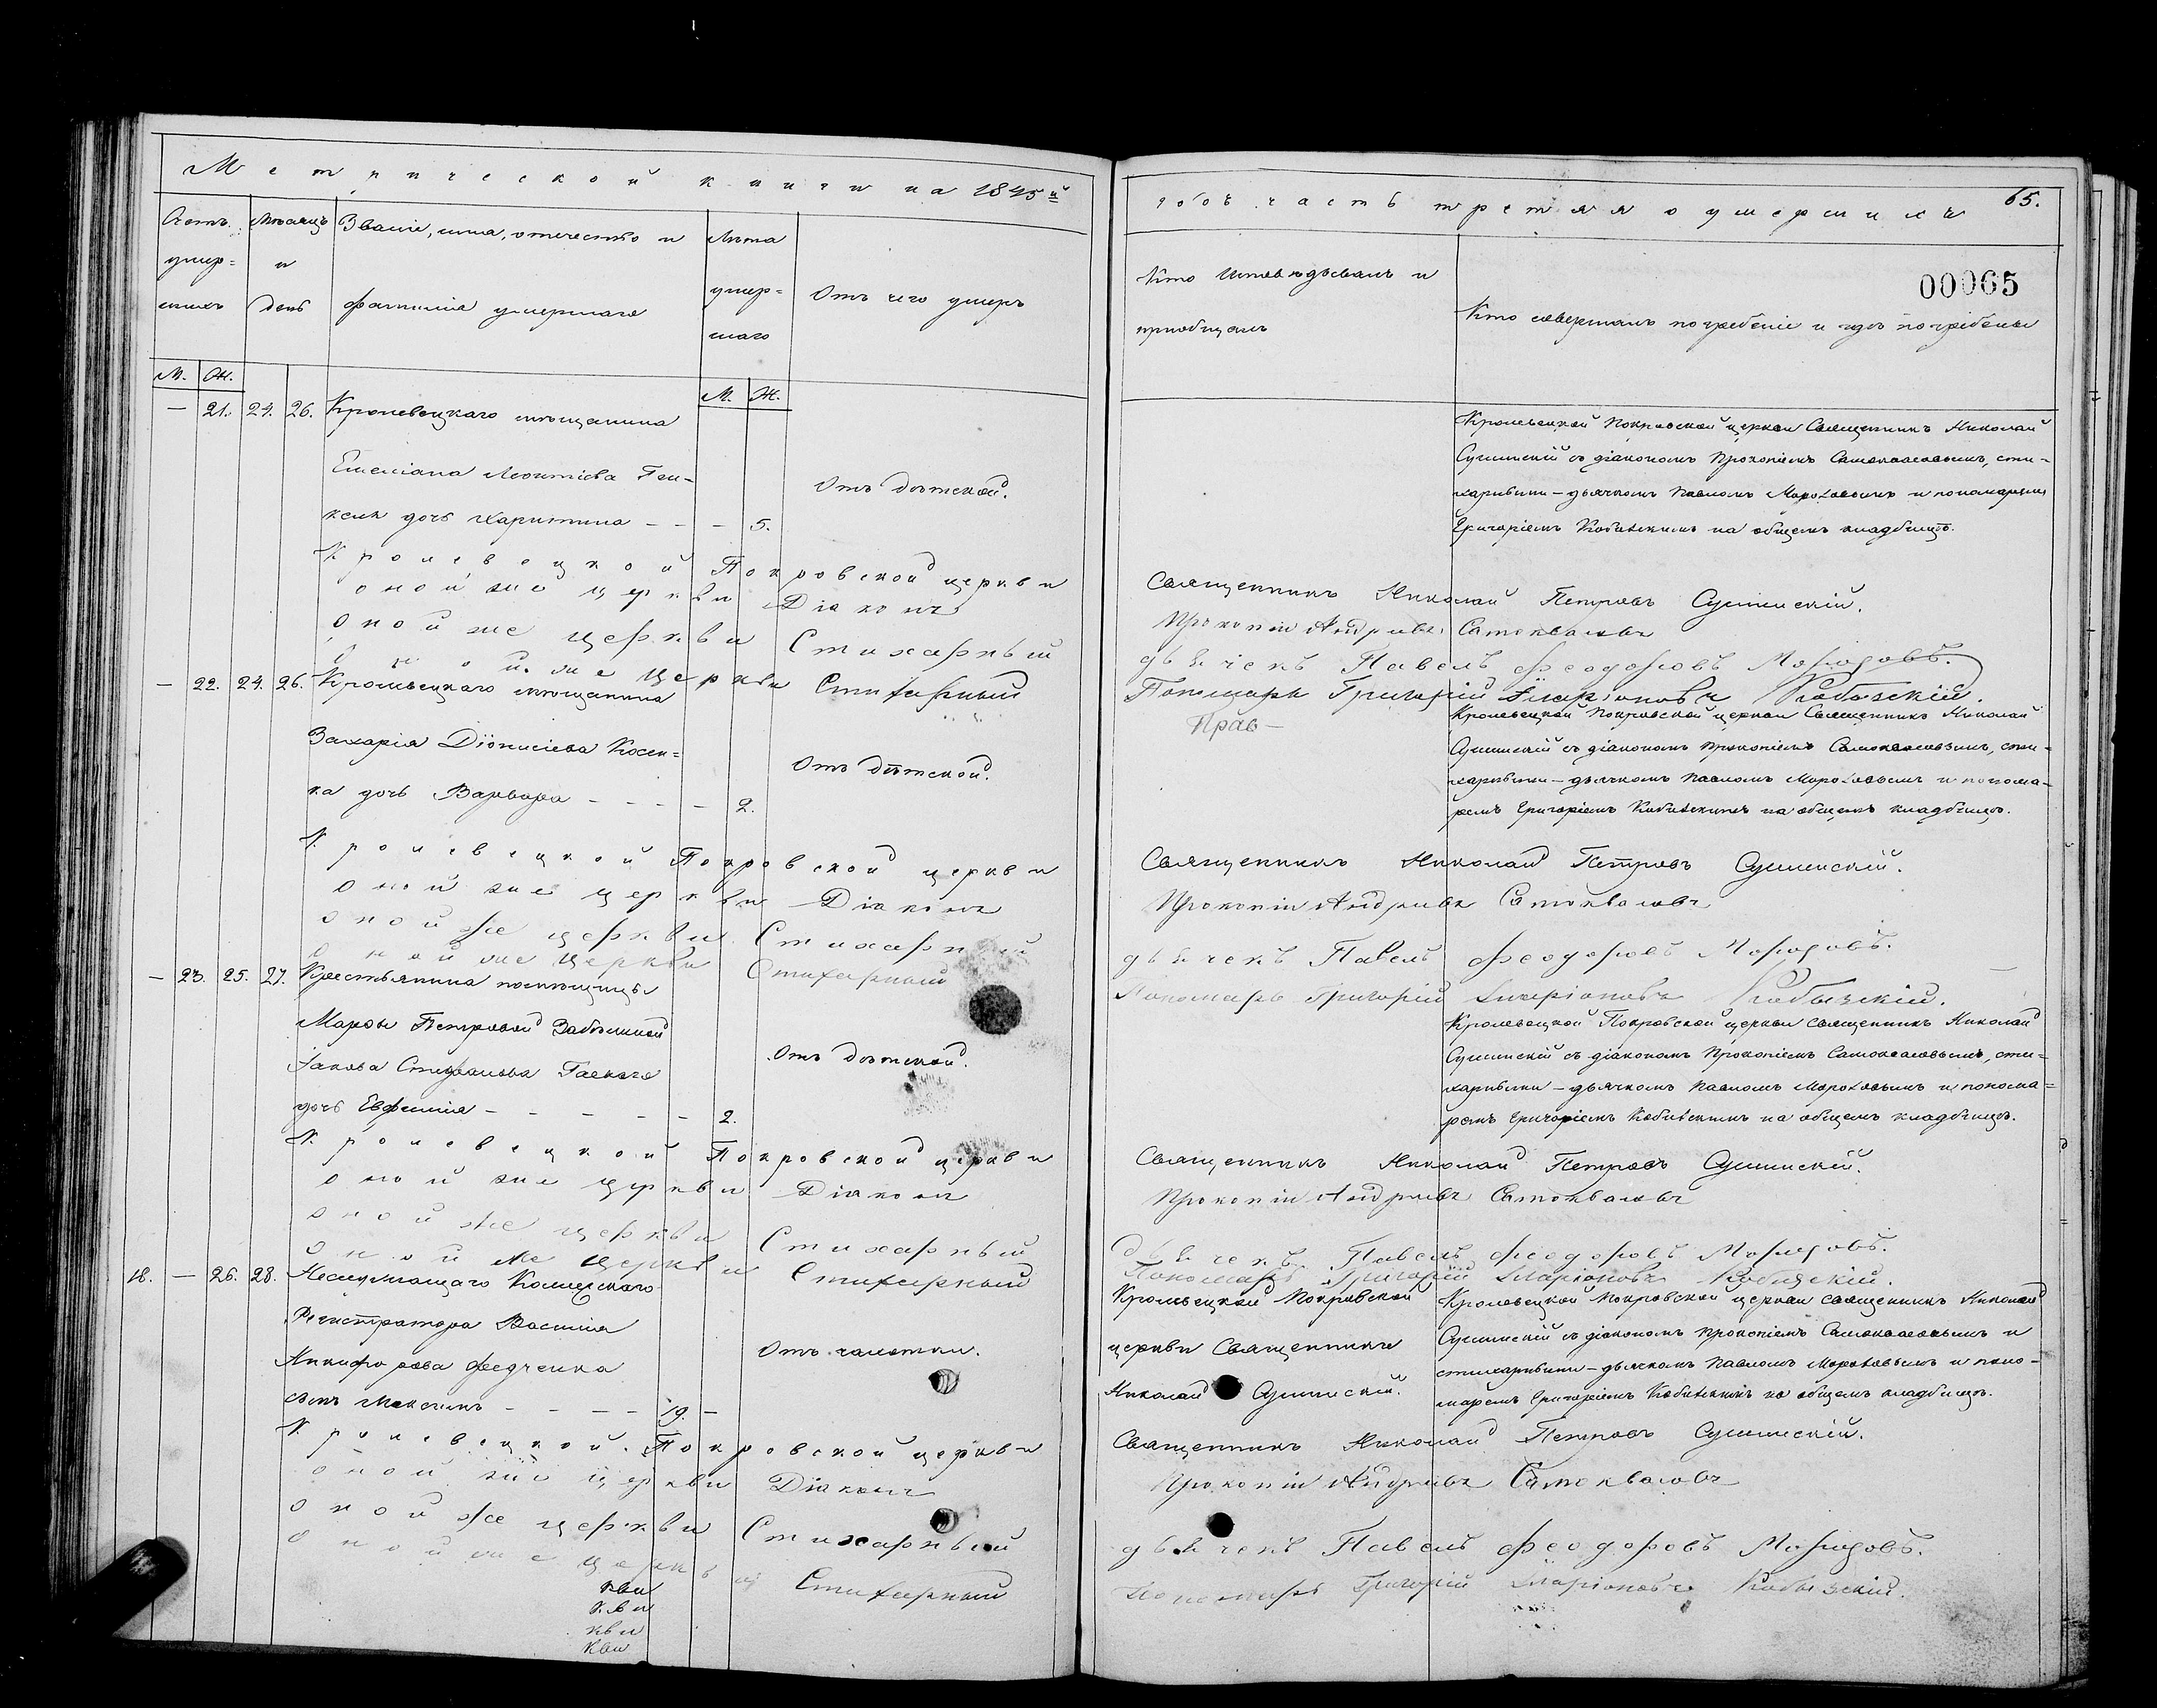 Метрической книги на 1845й
годъ часть третяя о умершихъ
65.
00065
Счетъ умер=шихъ
Мѣсяцъ и день
Званіе, имя, отечество и фамилія умершаго
Лѣта умер=шаго
Отъ чего умеръ
Кто исповѣдывалъ и пріобщалъ
Кто совершалъ погребеніе и гдѣ погребены
М. Ж.
М. Ж.
— 21. 24. 26. Кролевецкаго мѣщанина
Емеліана Леонтіева
дочь Харитина - - - 5.
Отъ дѣтской.
Кролевецкой Покровской церкви Священникъ Николай
Сушинскій съ діакономъ Прокопіемъ Самоквасовымъ, сти-
харнымъ-дьячкомъ Павломъ и пономаремъ
Григоріемъ на общемъ кладбищѣ.
Кролевецкой Покровской церкви Священникъ Николай Петровъ Сушинскій.
оной же церкви Діаконъ Прокопій Андреевъ Самоквасовъ
оной же церкви Стихарный дьячекъ Павелъ Феодоровъ
оной же церкви Стихарный Пономарь Григорій Иларіоновъ
Прав—
— 22. 24. 26. Кролевецкаго мѣщанина
Захарія Діонисіева Косен=
ка дочь Варвара - - - - 2.
Отъ дѣтской.
Кролевецкой Покровской церкви Священникъ Николай
Сушинскій съ діакономъ Прокопіемъ Самоквасовымъ, сти-
харнымъ-дьячкомъ Павломъ и понома-
ремъ Григоріемъ на общемъ кладбищѣ.
Кролевецкой Покровской церкви Священникъ Николай Петровъ Сушинскій.
оной же церкви Діаконъ Прокопій Андреевъ Самоквасовъ
оной же церкви Стихарный дьячекъ Павелъ Феодоровъ
оной же церкви Стихарный Пономарь Григорій Иларіоновъ
— 23. 25. 27. Крестьянина помѣщицы
Марфы Петровой
Іакова Стефанова
дочь Евфимія - - - - - 2.
Отъ дѣтской.
Кролевецкой Покровской церкви священникъ Николай
Сушинскій съ діакономъ Прокопіемъ Самоквасовымъ, сти=
харнымъ-дьячкомъ Павломъ и понома=
ремъ Григоріемъ на общемъ кладбищѣ.
Кролевецкой Покровской церкви Священникъ Николай Петровъ Сушинскій.
оной же церкви Діаконъ Прокопій Андреевъ Самоквасовъ
оной же церкви Стихарный дьячекъ Павелъ Феодоровъ
оной же церкви Стихарный Пономарь Григорій Иларіоновъ
18. — 26. 28. Неслужащаго Коллежскаго
Регистратора Василія
Никифорова Федченка
сынъ Максимъ - - - - 19. -
Отъ чахотки.
Кролевецкой Покровской
церкви Священникъ
Николай Сушинскій.
Кролевецкой Покровской церкви священникъ Николай
Сушинскій съ діакономъ Прокопіемъ Самоквасовымъ и
стихарнымъ-дьячкомъ Павломъ и поно-
маремъ Григоріемъ на общемъ кладбищѣ.
Кролевецкой Покровской церкви Священникъ Николай Петровъ Сушинскій.
оной же церкви Діаконъ Прокопій Андреевъ Самоквасовъ
оной же церкви Стихарный дьячекъ Павелъ Феодоровъ
оной же церкви Стихарный Пономарь Григорій Иларіоновъ
кви
кви
кви
кви